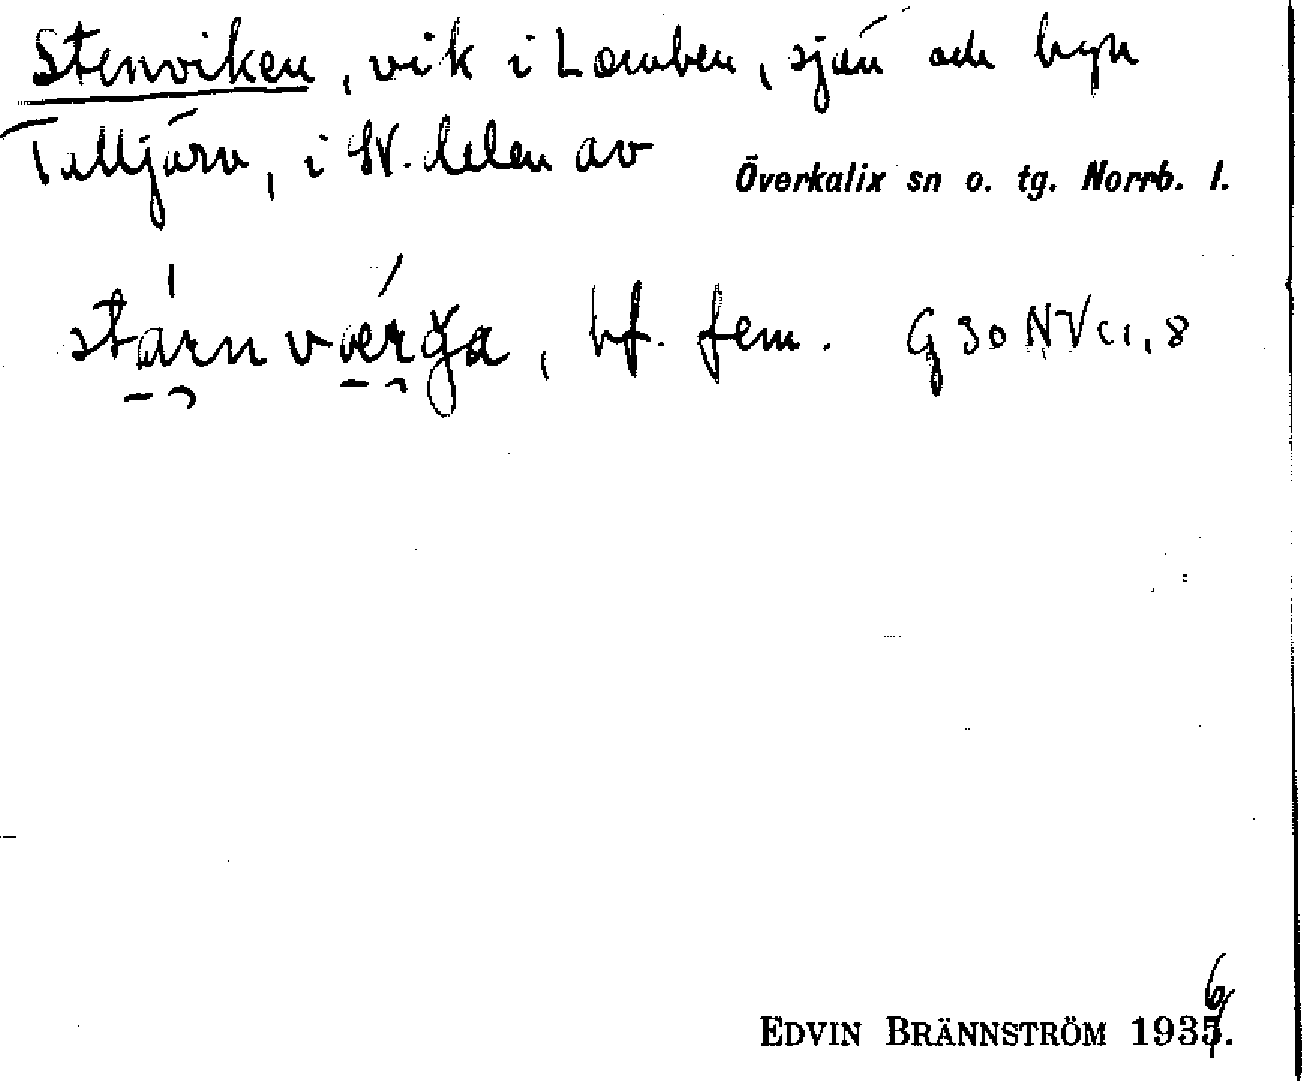 Stenviken, vik i Lomben, sjön och byn
Talltjärn, i SV. delen av
Överkalix sn o. tg. Norrb. l.
bf. fem. G 30 NV c1, 8
EDVIN BRÄNNSTRÖM 1936.